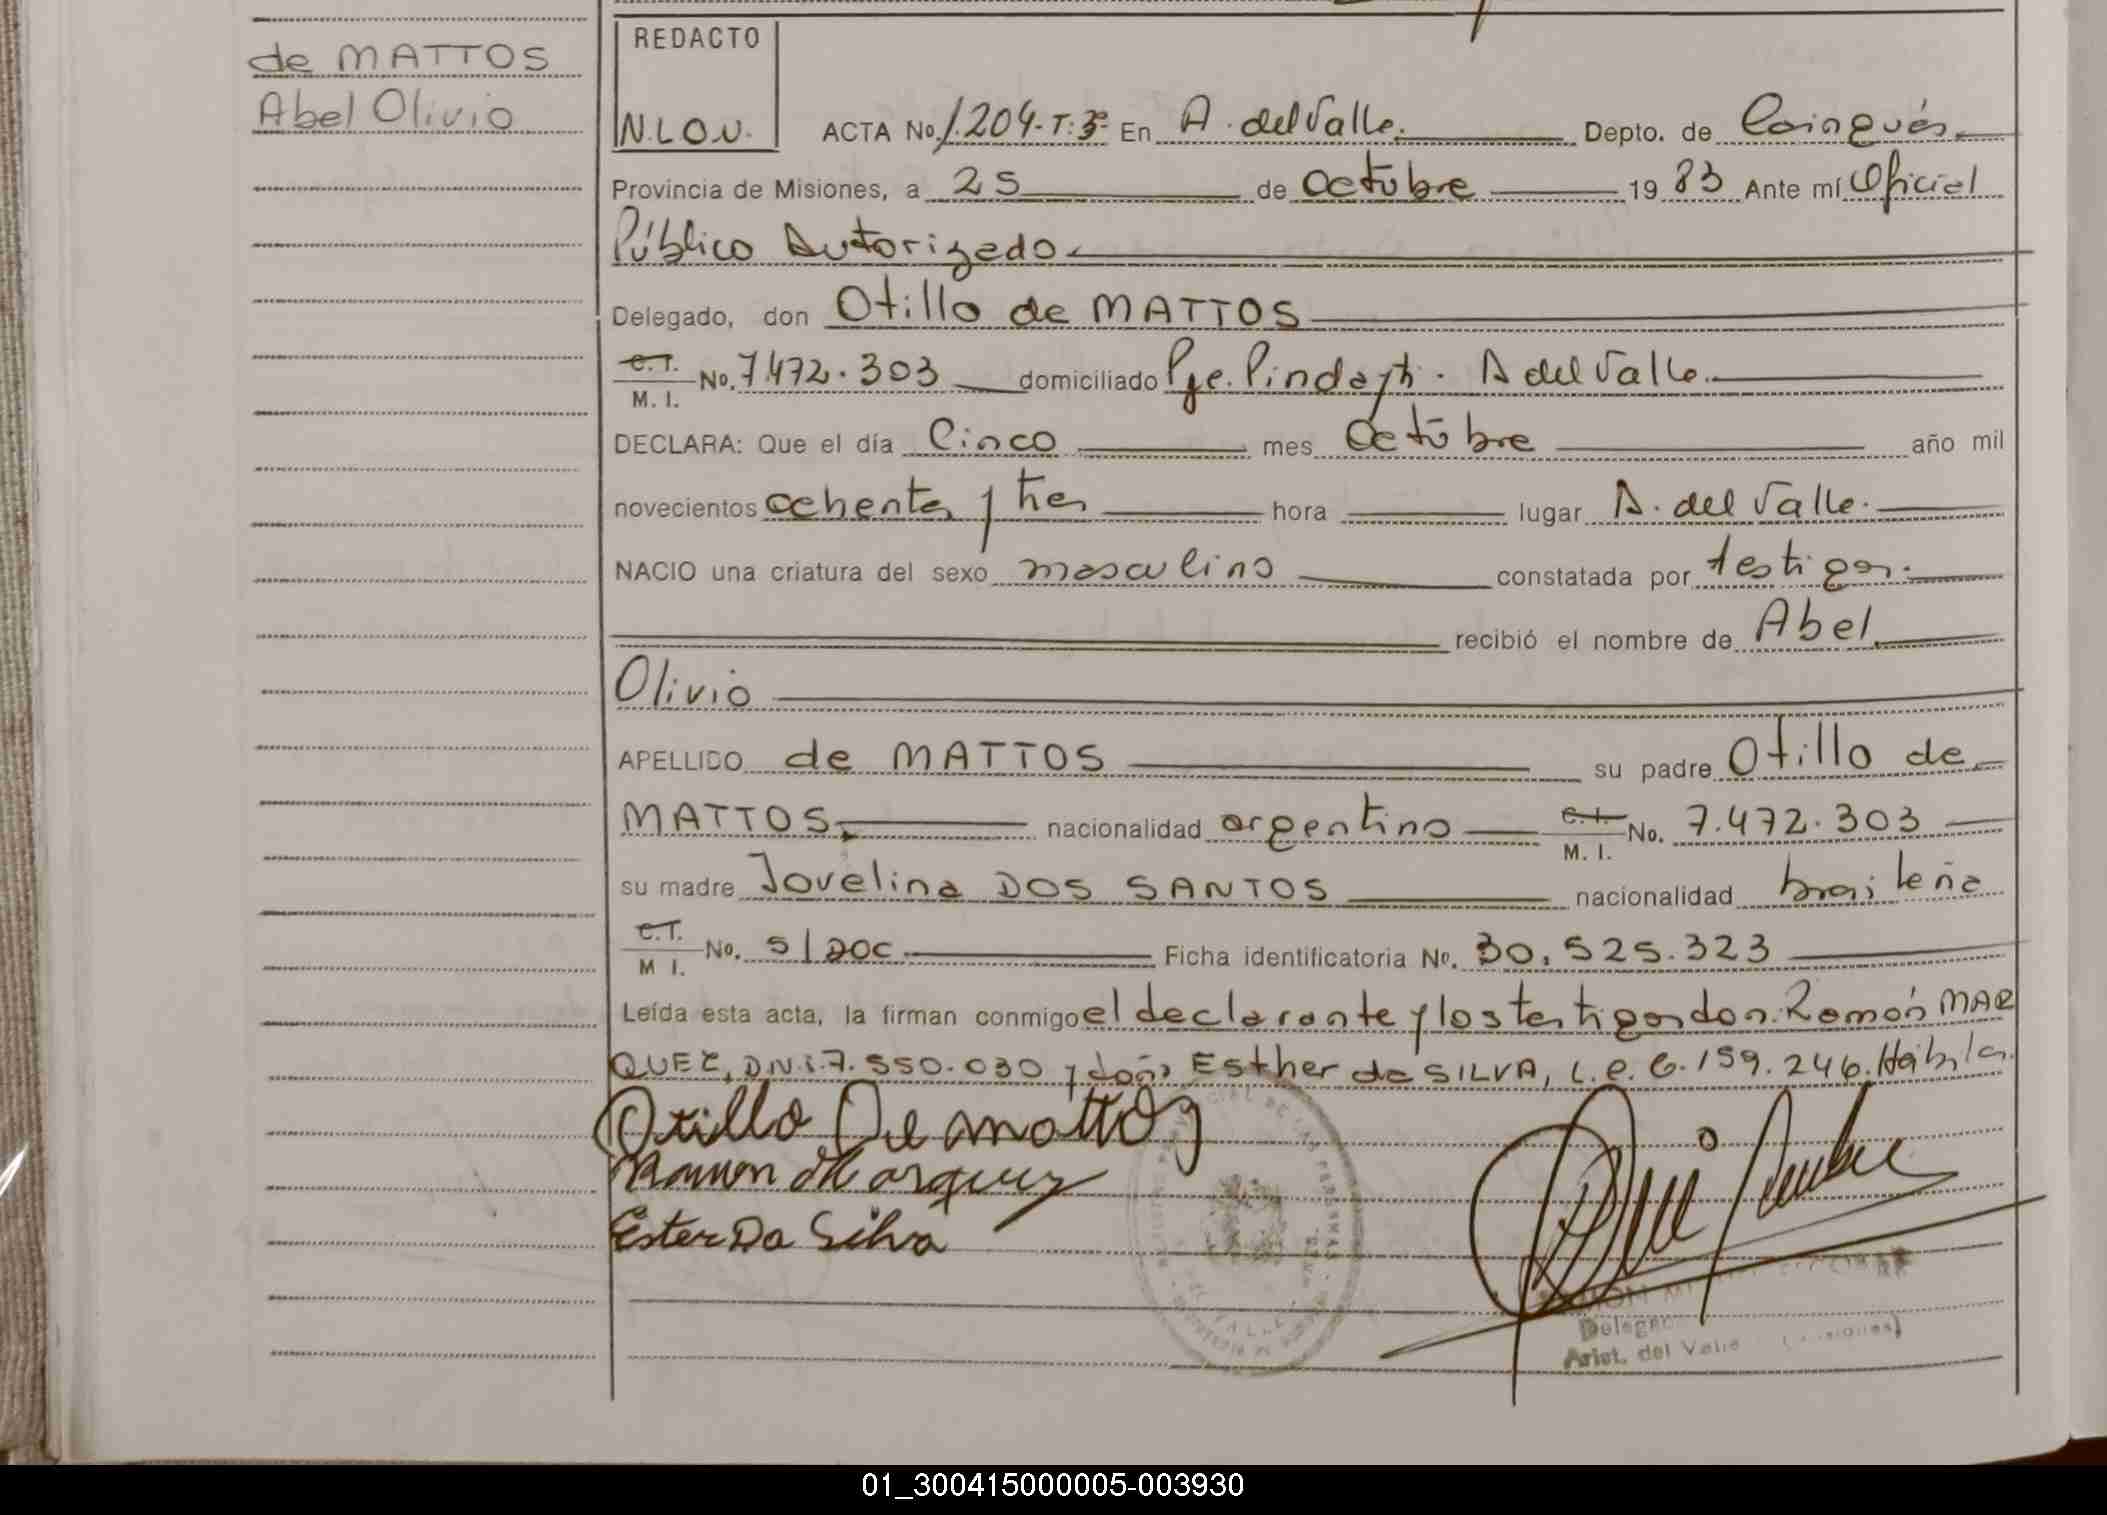 de MATTOS
Abel Olivio
REDACTO
N.L.O.V.
ACTA No. 1.204-T:3º En A. del Valle. Depto. de Cainguás
Provincia de Misiones, a 25 de octubre 1983 Ante mí Oficial
Público Autorizado
Delegado, don Otillo de MATTOS
C.I. M. I. No. 7.472.303 domiciliado Pje. Pindayti. A del Valle.
DECLARA: Que el día Cinco mes Octubre año mil
novecientos ochenta y tres hora lugar A. del Valle.
NACIO una criatura del sexo masculino constatada por testigos.
recibió el nombre de Abel
Olivio
APELLIDO de MATTOS su padre Otillo de
MATTOS. nacionalidad argentino C.I. M. I. No. 7.472.303
su madre Jovelina DOS SANTOS nacionalidad brasileña
C.I. M I. No. s/doc Ficha identificatoria Nº. 30.525.323
Leída esta acta, la firman conmigo el declarante y los testigos don Ramón MAR
QUEZ, DNI.7.550.030 y doña Esther da SILVA, L.C. 6.159.246. Hábiles.
Otillo De mattos
Ramon Marquez
Ester Da Silva
Delegado
Arist. del Valle (Misiones)
01_300415000005-003930